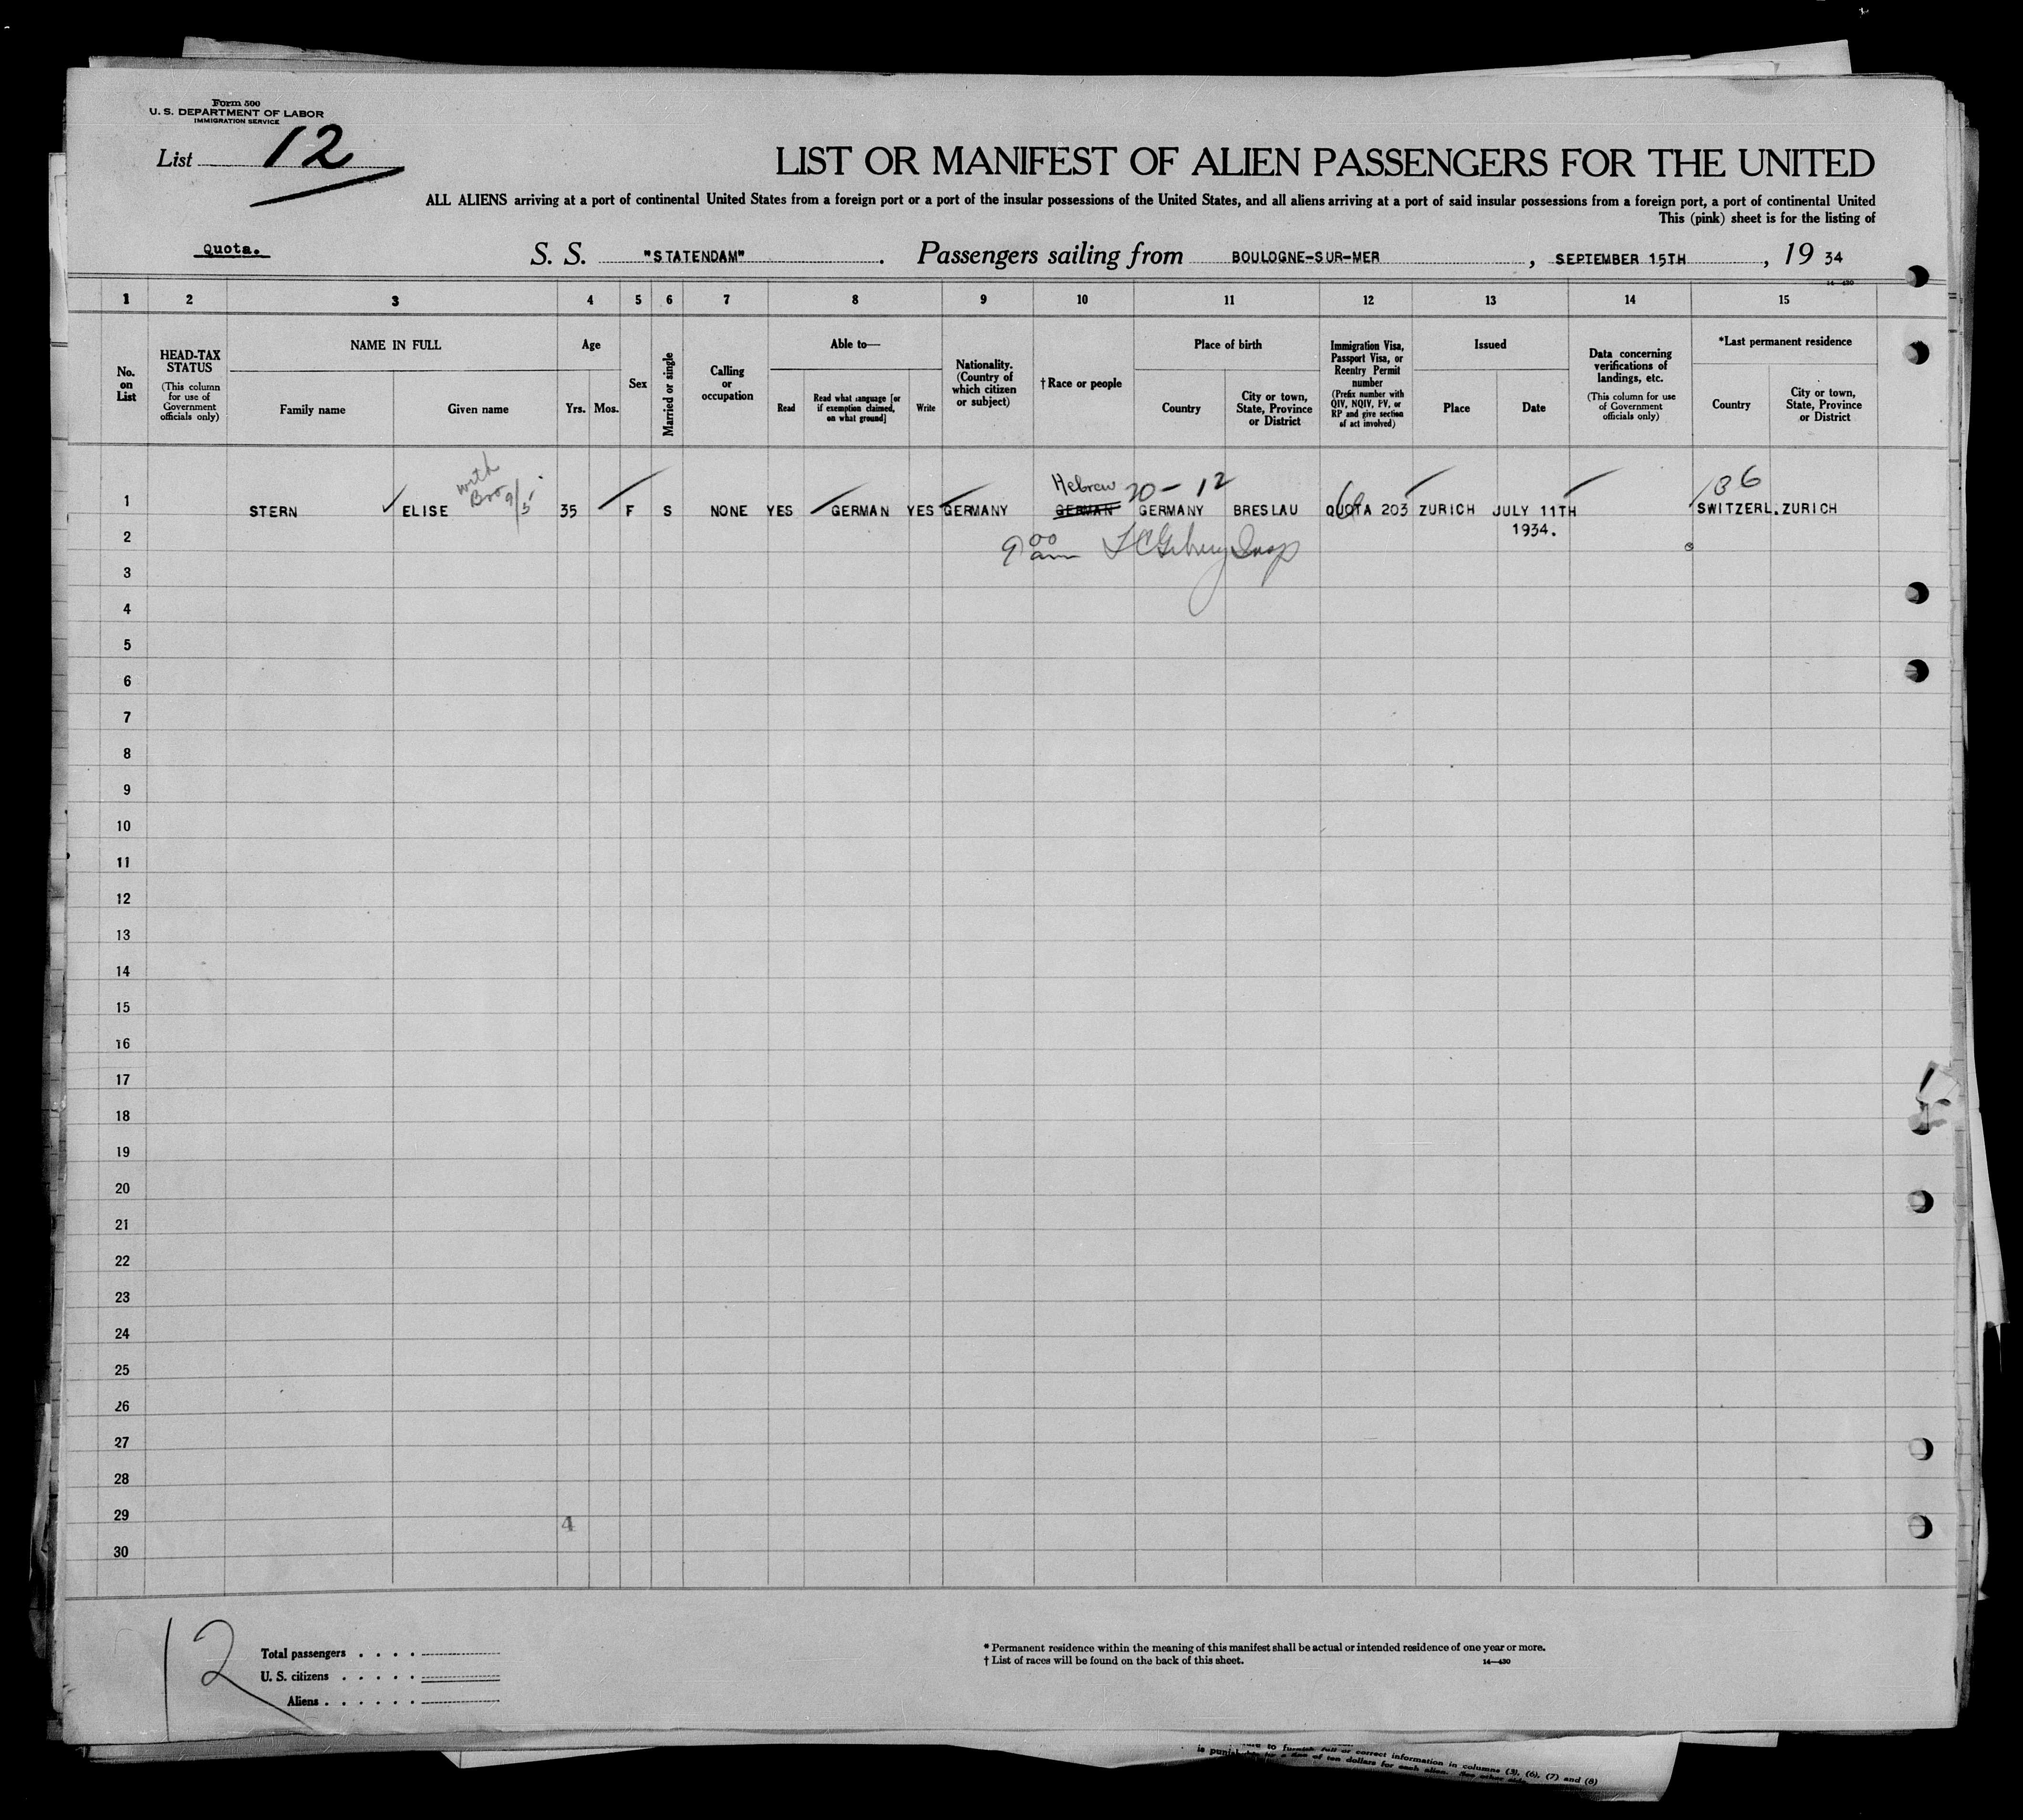 Form 500
U. S. DEPARTMENT OF LABOR
IMMIGRATION SERVICE
List 12
LIST OR MANIFEST OF ALIEN PASSENGERS FOR THE UNITED
ALL ALIENS arriving at a port of continental United States from a foreign port or a port of the insular possessions of the United States, and all aliens arriving at a port of said insular possessions from a foreign port, a port of continental United
This (pink) sheet is for the listing of
Quota. S. S. "STATENDAM" . Passengers sailing from BOULOGNE-SUR-MER , SEPTEMBER 15TH , 19 34
14—430
1 2 3 4 5 6 7 8 9 10 11 12 13 14 15
No. on List
HEAD-TAX STATUS
(This column for use of Government officials only)
NAME IN FULL
Family name
Given name
Age
Yrs. Mos.
Sex
Married or single
Calling or occupation
Able to—
Read
Read what language [or if exemption claimed, on what ground]
Write
Nationality. (Country of which citizen or subject)
† Race or people
Place of birth
Country
City or town, State, Province or District
Immigration Visa, Passport Visa, or Reentry Permit number
(Prefix number with QIV, NQIV, PV, or RP and give section of act involved)
Issued
Place
Date
Data concerning verifications of landings, etc.
(This column for use of Government officials only)
*Last permanent residence
Country
City or town, State, Province or District
with
Bro 9/5
Hebrew 20-12
136
1 STERN ELISE 35 F S NONE YES GERMAN YES GERMANY GERMAN GERMANY BRESLAU QUOTA 203 ZURICH JULY 11TH SWITZERL. ZURICH
1934.
2 9 00 am Insp
3
4
5
6
7
8
9
10
11
12
13
14
15
16
17
18
19
20
21
22
23
24
25
26
27
28
29
4
30
12
Total passengers
U. S. citizens
Aliens
* Permanent residence within the meaning of this manifest shall be actual or intended residence of one year or more.
† List of races will be found on the back of this sheet.
14—430
to furnish full or correct information in columns (3), (6), (7) and (8)
is punishable by a fine of ten dollars for each alien.